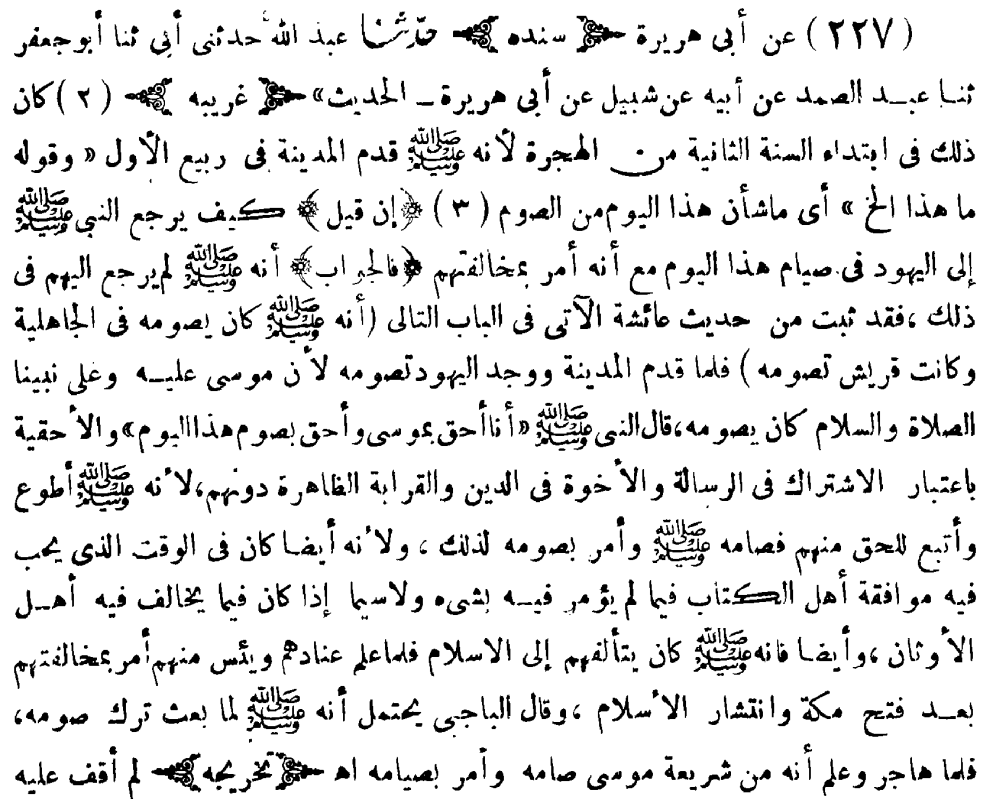 (٢٢٧) عن أبى هريرة ﴿ سنده ﴾ حدّثنا عبد الله حدثنى أبى ثنا أبو جعفر
ثنـا عبـد الصمد عن أبيه عن شبيل عن أبى هريرة ـ الحديث» ﴿ غريبه ﴾ (٢) كان
ذلك فى ابتداء السنة الثانية من الهجرة لأنه ﷺ قدم المدينة فى ربيع الأول « وقوله
ما هذا الخ » أى ماشأن هذا اليوم من الصوم (٣) ﴿ إن قيل ﴾ كيف يرجع النبى ﷺ
إلى اليهود فى صيام هذا اليوم مع أنه أمر بمخالفتهم ﴿ فالجواب ﴾ أنه ﷺ لم يرجع اليهم فى
ذلك ،فقد ثبت من حديث عائشة الآتى فى الباب التالى (أنه ﷺ كان يصومه فى الجاهلية
وكانت قريش تصومه) فلما قدم المدينة ووجد اليهود تصومه لأن موسى عليـه وعلى نبينا
الصلاة والسلام كان يصومه،قال النبى ﷺ «أنا أحق بموسى وأحق بصوم هذا اليوم» والأحقية
باعتبار الاشتراك فى الرسالة والأخوة فى الدين والقرابة الظاهرة دونهم،لأنه ﷺ أطوع
وأتبع للحق منهم فصامه ﷺ وأمر بصومه لذلك ، ولأنه أيضا كان فى الوقت الذى يحب
فيه موافقة أهل الكتاب فيما لم يؤمر فيـه بشىء ولاسيما إذا كان فيما يخالف فيه أهـل
الأوثان ،وأيضا فانه ﷺ كان يتألفهم إلى الاسلام فلما علم عنادهم ويئس منهم أمر بمخالفتهم
بعـد فتح مكة وانتشار الأسلام ،وقال الباجى يحتمل أنه ﷺ لما بعث ترك صومه،
فلما هاجر وعلم أنه من شريعة موسى صامه وأمر بصيامه اهـ ﴿ تخريجه ﴾ لم أقف عليه